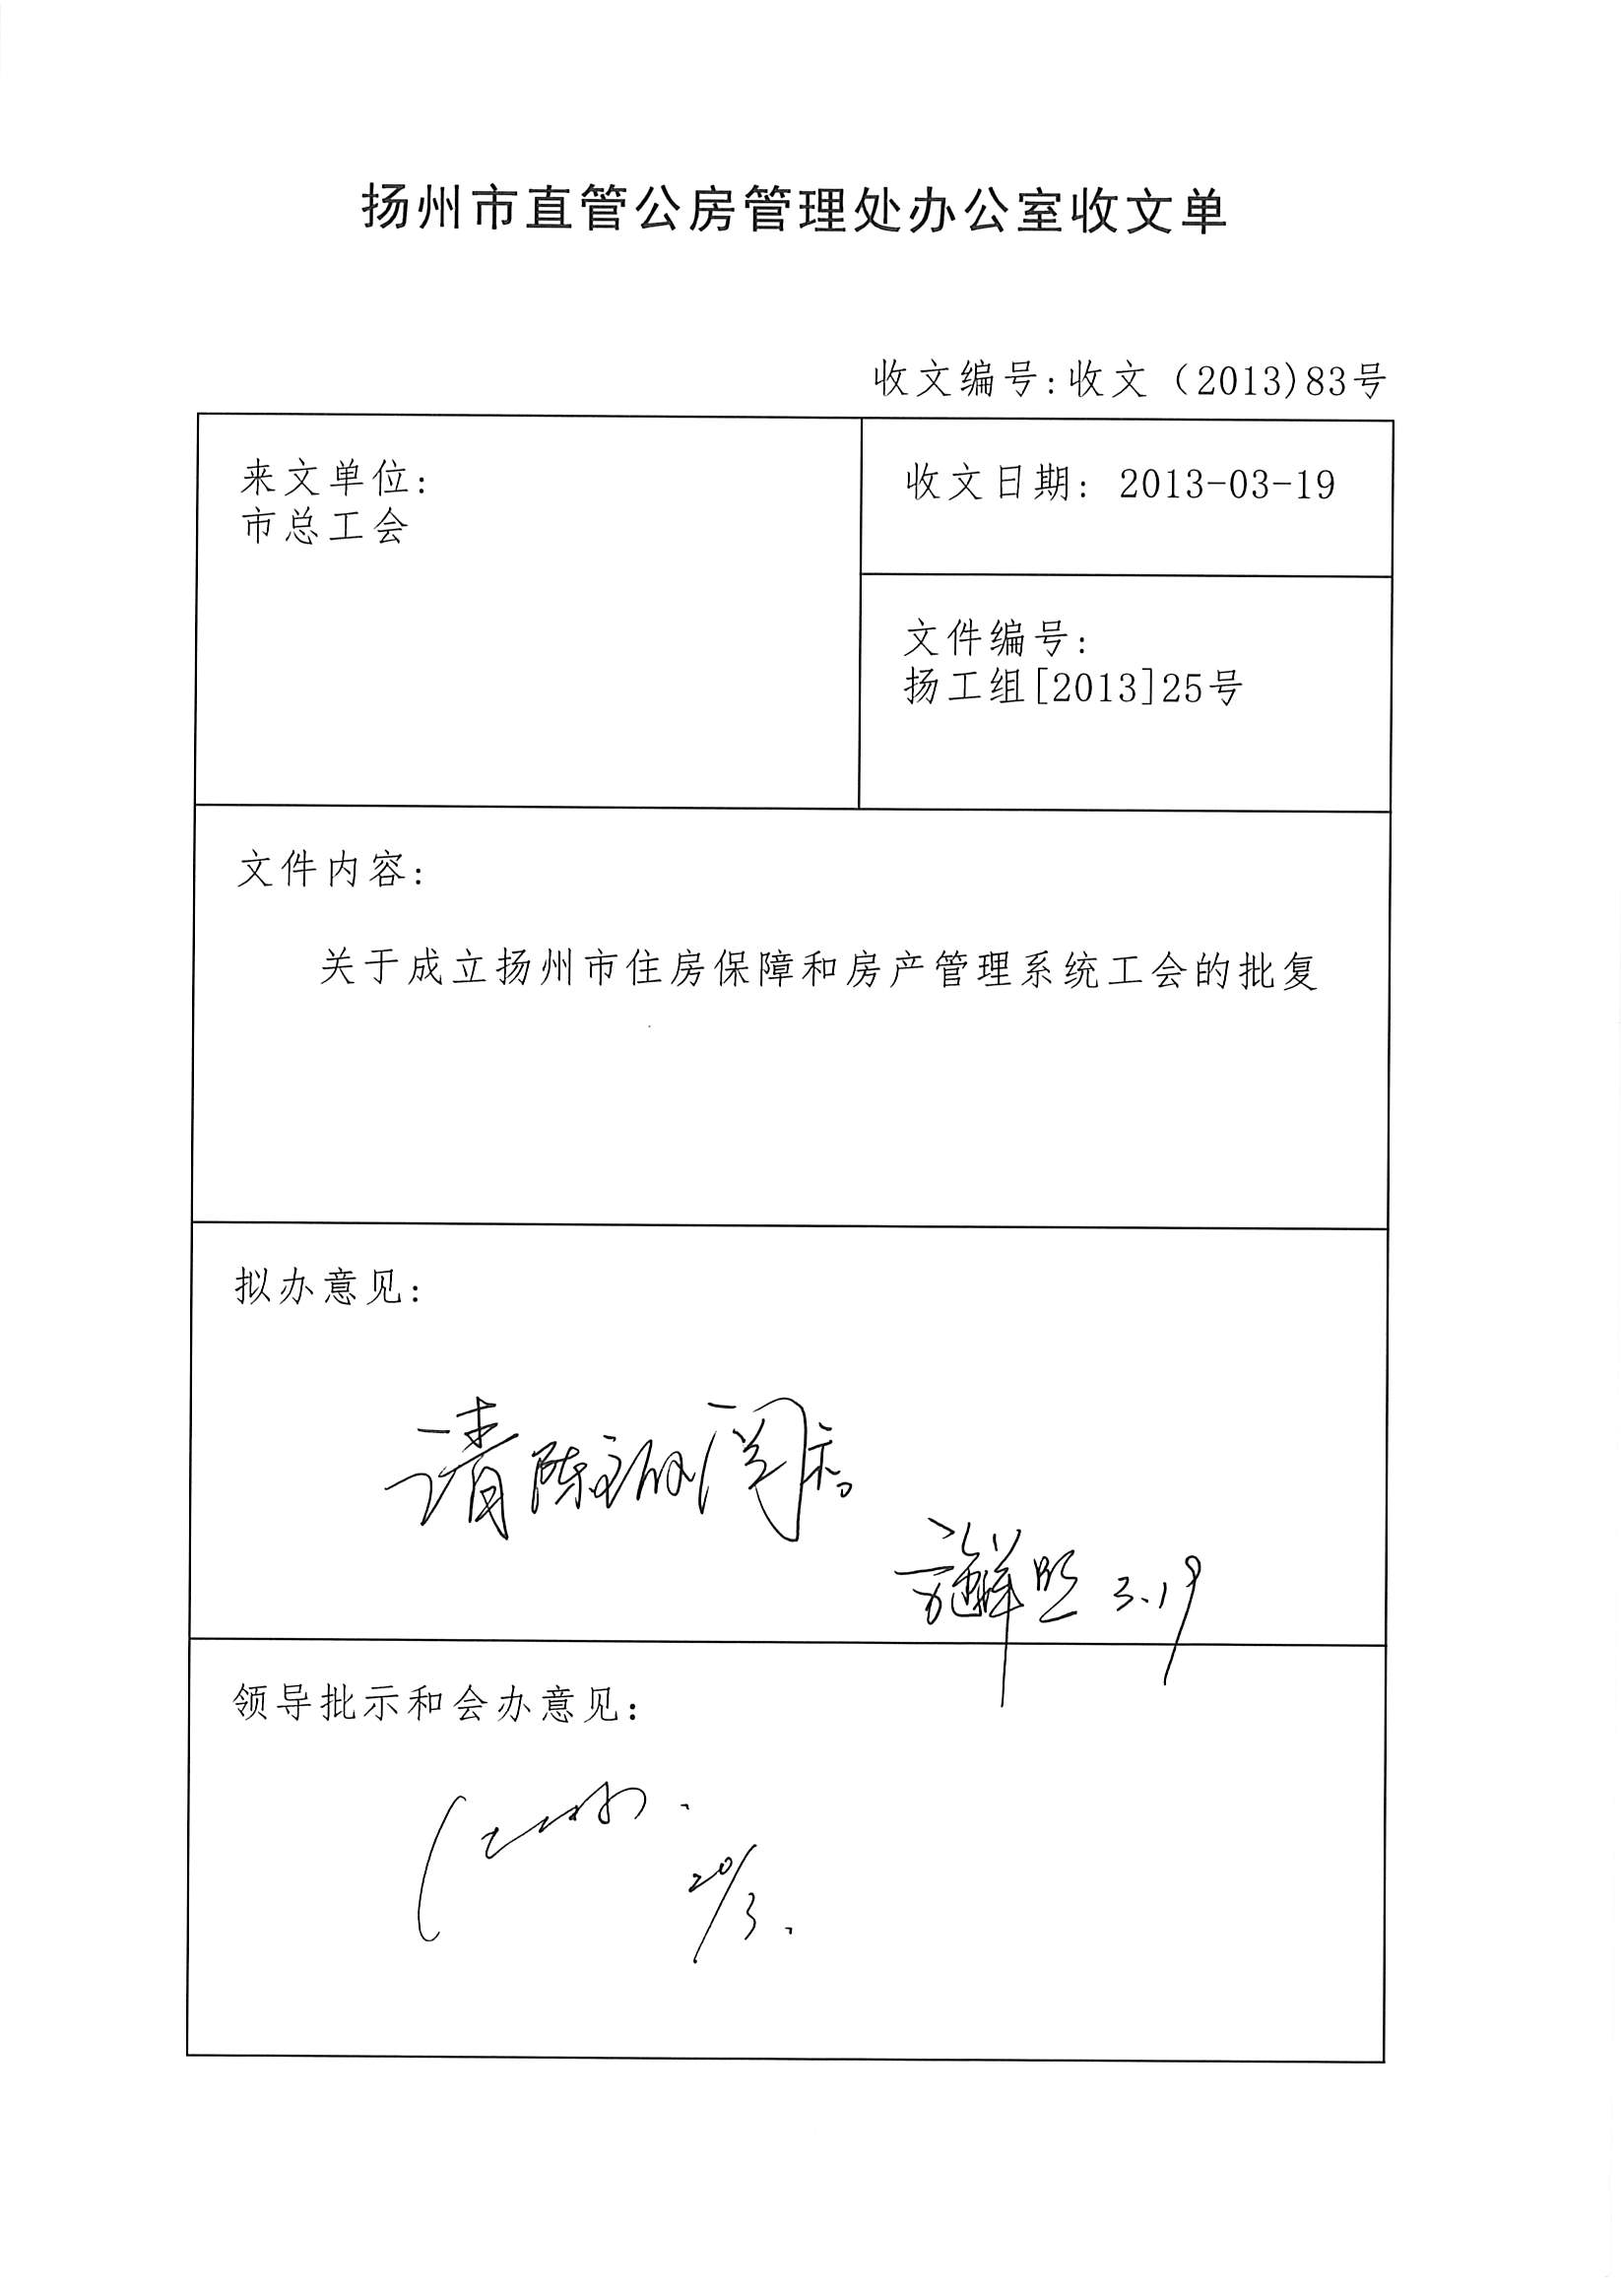 扬州市直管公房管理处办公室收文单
收文编号:收文（2013)83号
来文单位:
市总工会
收文日期: 2013-03-19
文件编号:
扬工组[2013]25号
文件内容:
关于成立扬州市住房保障和房产管理系统工会的批复
拟办意见:
请陈 阅示。
3.19
领导批示和会办意见:
20/3.